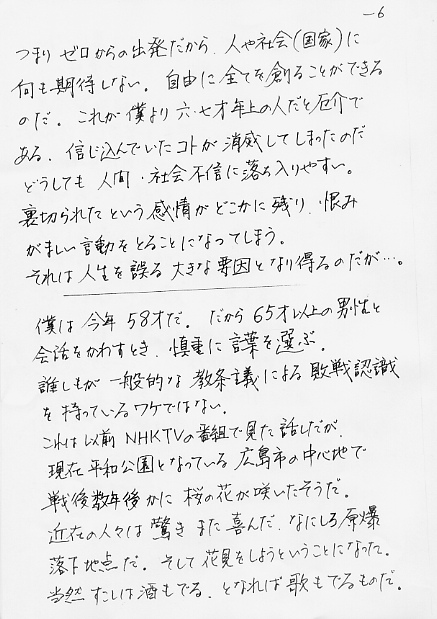 －6
つまり ゼロからの出発だから、人や社会(国家)に
何も期待しない。自由に全てを創ることができる
のだ。これが僕より六・七才年上の人だと厄介で
ある。信じ込んでいたコトが消滅してしまったのだ
どうしても 人間・社会不信に落ち入りやすい。
裏切られたという感情がどこかに残り、恨み
がましい言動をとることになってしまう。
それは人生を誤る大きな要因となり得るのだが…。
僕は今年58才だ。だから65才以上の男性と
会話をかわすとき、慎重に言葉を選ぶ。
誰しもが一般的な教条主義による敗戦認識
を持っているワケではない。
これは以前NHKTVの番組で見た話しだが、
現在平和公園となっている広島市の中心地で
戦後数年後かに桜の花が咲いたそうだ。
近在の人々は驚きまた喜んだ、なにしろ原爆
落下地点だ。そして花見をしようということになった。
当然すこしは酒もでる、となれば歌もでるものだ。